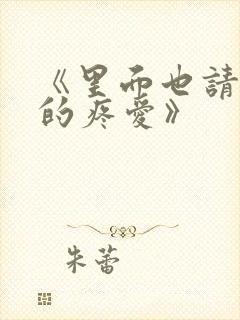 《里而也請
的疼愛》
朱蕾